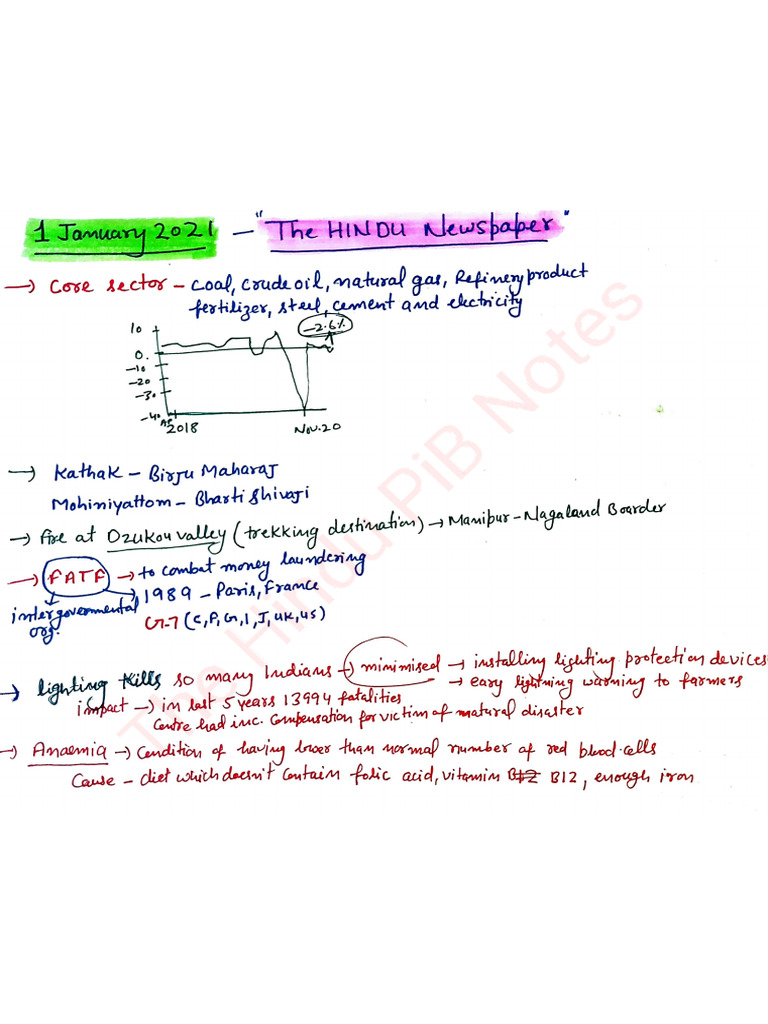 1 January 2021 - "The HINDU Newspaper"
→ Core sector - Coal, Crude oil, natural gas, Refinery product
fertilizer, steel, cement and electricity
-2.6%
10
0.
-10
-20
-30
-40
2018
Nov.20
→ Kathak - Birju Maharaj
Mohiniyattom - Bharti Shivaji
→ fire at Dzukou valley (trekking destination) → Manipur - Nagaland Boarder
→ FATF → to combat money laundering
1989 - Paris, France
intergovernmental
org.
G-7 (C, F, G, I, J, UK, US)
→ lighting kills so many Indians → minimised → installing lighting protection devices
→ eary lightning warning to farmers
impact → in last 5 years 13994 fatalities
Centre had inc. Compensation for victim of natural disaster
→ Anaemia → Condition of having lower than normal number of red blood cells
Cause - diet which doesn't contain folic acid, vitamin B12 B12, enough iron
The Hindu PiB Notes